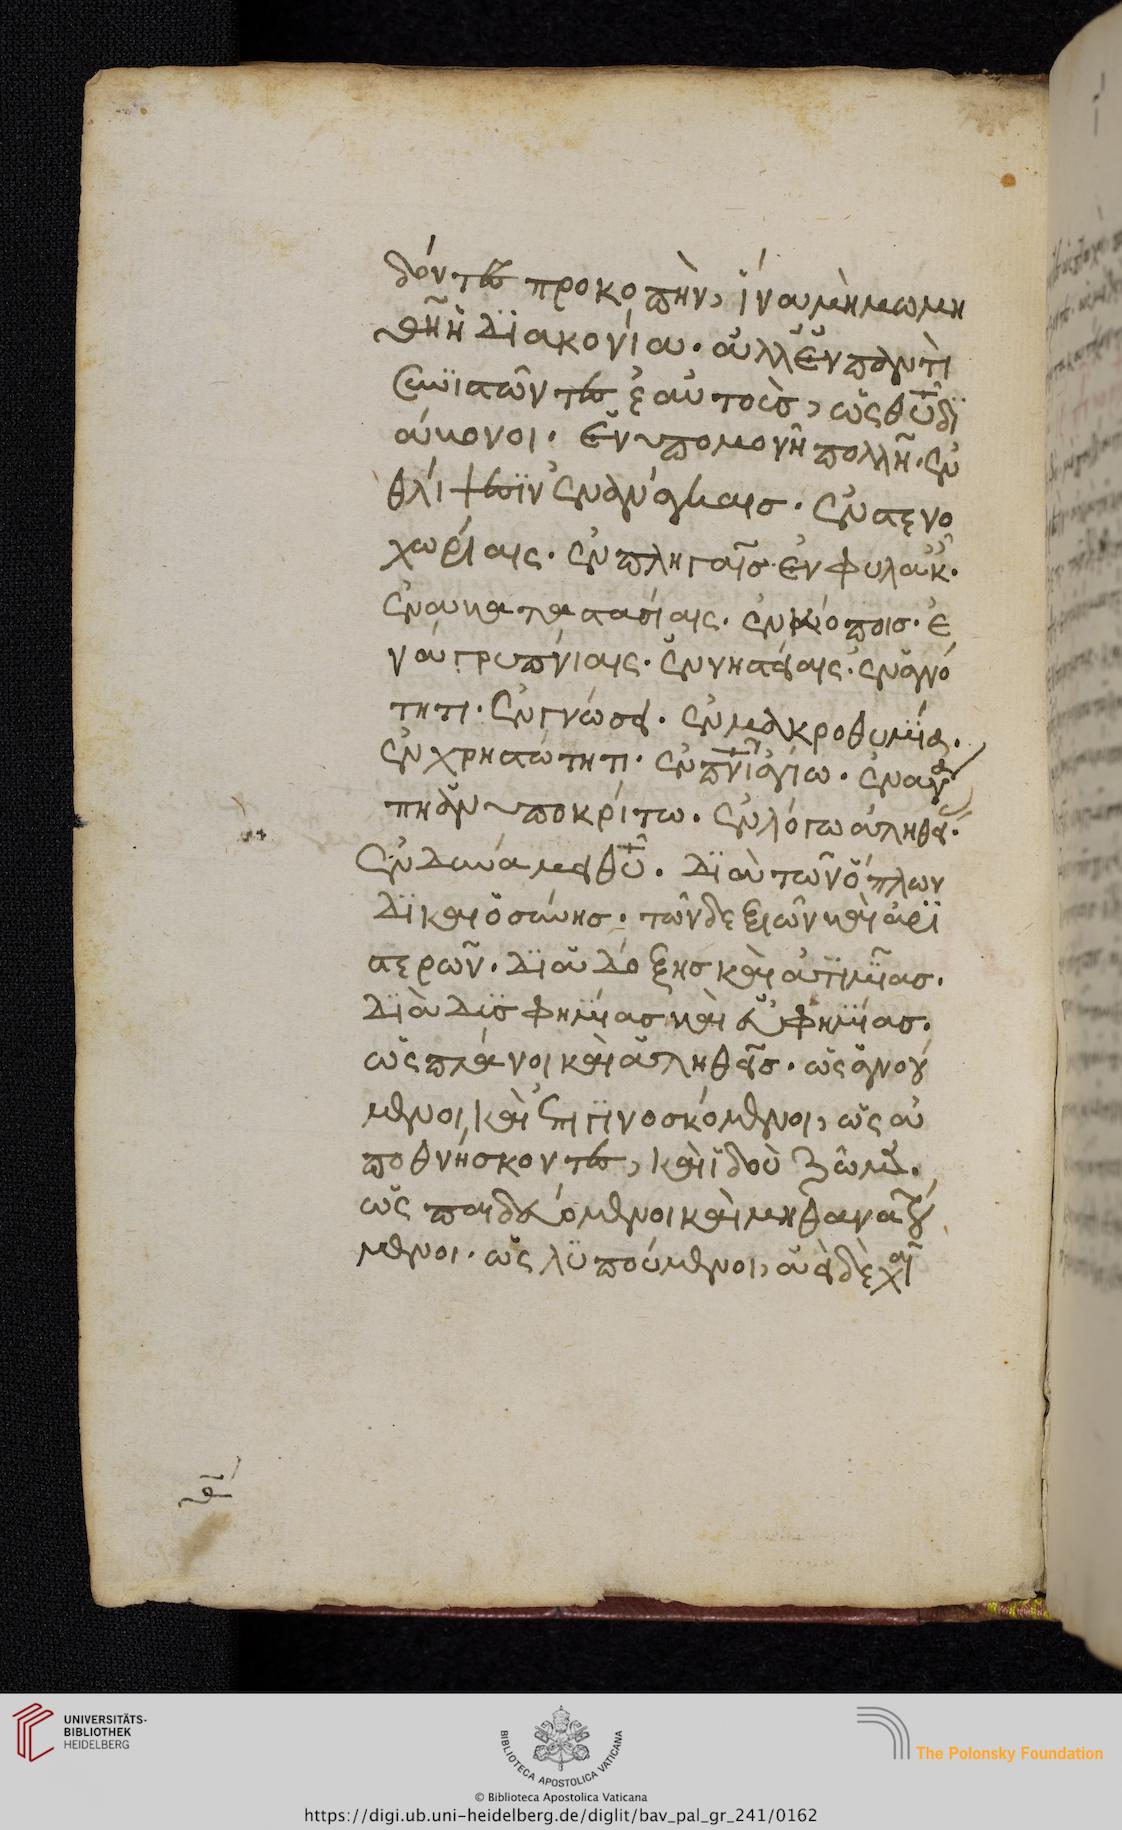 δόντες προκοπὴν, ἵνα μὴ μωμη
θῆ ἡ διακονία. ἀλλ' ἐν παντὶ
συνιστῶντες ἑαυτοὺς, ὡς θ̅υ̅ δι
άκονοι. ἐν ὑπομονῆ πολλῆ. ἐν
θλίψεσιν ἐν ἀνάγκαις. ἐν στενο
χωρίαις. ἐν πληγαῖς. ἐν φυλακ.
ἐν ἀκαταστασίαις. ἐν κόποις. ἐ
ν ἀγρυπνίαις. ἐν νηστείαις. ἐν ἁγνό
τητι. ἐν γνώσει. ἐν μακροθυμία.
ἐν χρηστότητι. ἐν π̅ν̅ι̅ ἁγίω. ἐν ἀγά
πη ἀνυποκρίτω. ἐν λόγω ἀληθεί.
ἐν δυνάμει θ̅υ̅. διὰ τῶν ὅπλων
δικαιοσύνης. τῶν δεξιῶν καὶ ἀρι
στερῶν. διὰ δόξης καὶ ἀτιμίας.
διὰ δυσφημίας καὶ εὐφημίας.
ὡς πλάνοι καὶ ἀληθεῖς. ὡς ἀγνοού
μενοι, καὶ ἐπιγινοσκόμενοι, ὡς ἀ
ποθνήσκοντες, καὶ ἰδοὺ ζῶμεν.
ὡς παιδευόμενοι καὶ μὴ θανατού
μενοι. ὡς λυπούμενοι, ἀεὶ δὲ χαί
UNIVERSITÄTS-
BIBLIOTHEK
HEIDELBERG
BIBLIOTECA APOSTOLICA VATICANA
The Polonsky Foundation
© Biblioteca Apostolica Vaticana
https://digi.ub.uni-heidelberg.de/diglit/bav_pal_gr_241/0162